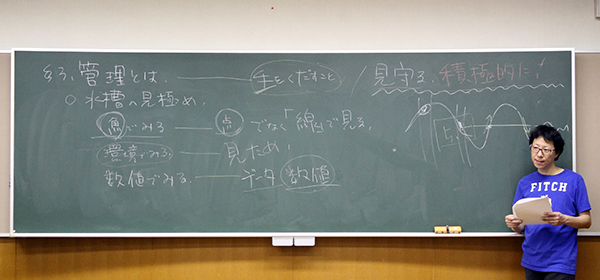 §3. 管理とは、 手をくだすこと / 見守る、積極的に!
○水槽の見極め、
魚でみる 点 でなく「線」で見る。
環境でみる 見ため!
数値でみる データ 数値
FITCH